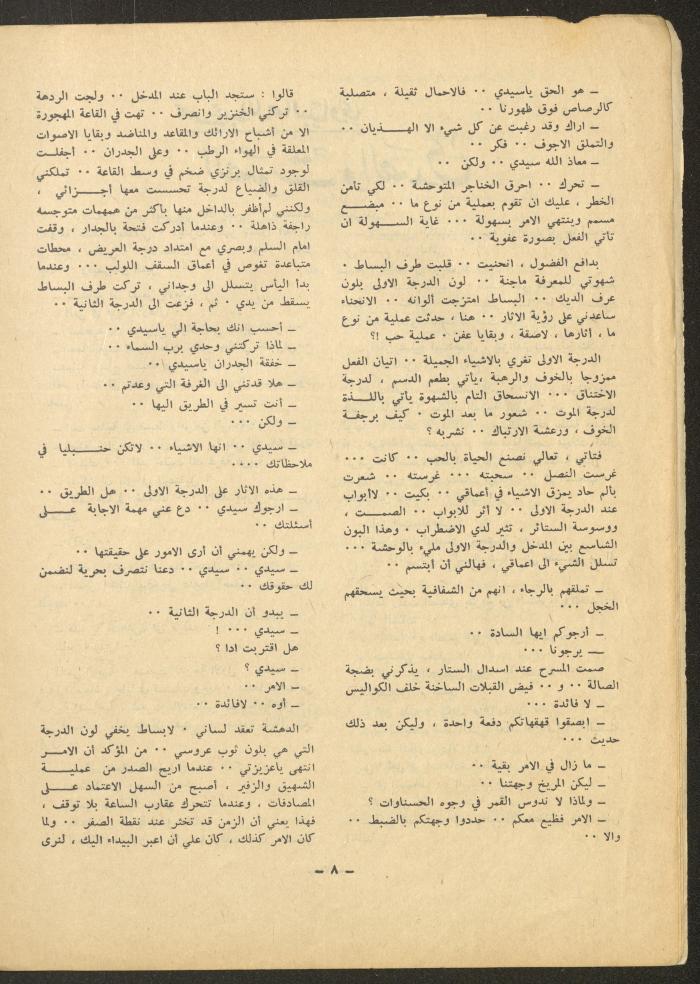 ـ هو الحق ياسيدي ٠٠ فالاحمال ثقيلة ، متصلبة
كالرصاص فوق ظهورنا ٠٠
ـ اراك وقد رغبت عن كل شيء الا الهـــذيان ٠٠
والتملق الاجوف ٠٠ فكر ٠٠
ـ معاذ الله سيدي ٠٠ ولكن ٠٠
ـ تحرك ٠٠ احرق الخناجر المتوحشة ٠٠ لكي تأمن
الخطر ، عليك ان تقوم بعملية من نوع ما ٠٠ مبضـــع
مسمم وينتهي الامر بسهولة ٠٠٠ غاية الســـهولة ان
تأتي الفعل بصورة عفوية ٠٠
بدافع الفضول ، انحنيت ٠٠ قلبت طرف البساط ٠
شهوتي للمعرفة ماجنة ٠٠ لون الدرجة الاولى بلون
عرف الديك ٠٠ البساط امتزجت ألوانه ٠٠ الانحناء
ساعدني على رؤية الاثار ٠٠ هنا ، حدثت عملية من نوع
ما ، أثارها ، لاصقة ، وبقايا عفن ٠ عملية حب !؟
الدرجة الاولى تغري بالاشياء الجميلة ٠٠ اتيان الفعل
ممزوجا بالخوف والرهبة ،يأتي بطعم الدسم ، لدرجة
الاختناق ٠٠٠ الانسحاق التام بالشهوة يأتي باللـــذة
لدرجة الموت ٠٠ شعور ما بعد الموت ٠ كيف برجفـة
الخوف ، ورعشة الارتباك ٠٠ نشربه ؟
فتاتي ، تعالي نصنع الحياة بالحب ٠٠ كانت ٠٠٠
غرست النصل ٠٠ سحبته ٠٠٠ غرسته ٠٠ شعرت
بألم حاد يمزق الاشياء في أعماقي ٠٠ بكيت ٠٠ لاأبواب
عند الدرجة الاولى ٠٠ لا أثر للابواب ٠٠ الصمــت ،
ووسوسة الستائر ، تثير لدي الاضطراب ٠ وهذا البون
الشاسع بين المدخل والدرجة الاولى مليء بالوحشة ٠٠٠
تسلل الشيء الى اعماقي ، فهالني أن ابتسم ٠٠
ـ تملقهم بالرجاء ، انهم من الشفافية بحيث يسحقهم
الخجل ٠٠٠
ـ أرجوكم ايها السادة ٠٠
ـ يرجونا ٠٠٠
صمت المسرح عند اسدال الستار ، يذكرني بضجة
الصالة ٠٠ و ٠٠ فيض القبلات الساخنة خلف الكواليس
ـ لا فائدة ٠٠٠
ـ ابصقوا قهقهاتكم دفعة واحدة ، وليكن بعد ذلك
حديث ٠٠٠
ـ ما زال في الامر بقية ٠٠
ـ ليكن المريخ وجهتنا ٠٠
ـ ولماذا لا ندوس القمر في وجوه الحسناوات ؟
ـ الامر فظيع معكم ٠٠ حددوا وجهتكم بالضبط ٠٠
والا ٠٠
قالوا : ستجد الباب عند المدخل ٠٠ ولجت الردهة
٠٠ تركني الخنزير وانصرف ٠٠ تهت في القاعة المهجورة
الا من أشباح الارائك والمقاعد والمناضد وبقايا الاصوات
المعلقة في الهواء الرطب ٠٠ وعلى الجدران ٠٠ أجفلـت
لوجود تمثال برنزي ضخم في وسط القاعة ٠٠ تملكني
القلق والضياع لدرجة تحسست معها أجـــزائي ،
ولكنني لم أظفر بالداخل منها بأكثر من همهمات متوجسه
راجفة ذاهلة ٠٠ وعندما أدركت فتحة بالجدار ، وقفت
امام السلم وبصري مع امتداد درجة العريض ، محطات
متباعدة تغوص في أعماق السقف اللولب ٠٠٠ وعندما
بدأ اليأس يتسلل الى وجداني ، تركت طرف البساط
يسقط من يدي ٠ ثم ، فزعت الى الدرجة الثانية ٠٠
ـ أحسب انك بحاجة الي ياسيدي ٠٠
ـ لماذا تركتني وحدي برب السماء ٠٠
ـ خفقة الجدران ياسيدي ٠٠
ـ هلا قدتني الى الغرفة التي وعدتم ٠٠
ـ أنت تسير في الطريق اليها ٠٠
ـ ولكن ٠٠٠
ـ سيدي ٠٠ انها الاشياء ٠٠ لاتكن حنـــبليا في
ملاحظاتك ٠٠٠٠
ـ هذه الاثار على الدرجة الاولى ٠٠ هل الطريق ٠٠
ـ ارجوك سيدي ٠٠ دع عني مهمة الاجابة عـــلى
أسئلتك ٠٠
ـ ولكن يهمني أن أرى الامور على حقيقتها ٠٠
ـ سيدي ٠٠ سيدي ٠٠ دعنا نتصرف بحرية لنضمن
لك حقوقك ٠٠
ـ يبدو أن الدرجة الثانية ٠٠
ـ سيدي ٠٠٠ !
هل اقتربت اذا ؟
ـ سيدي ؟
ـ الامر ٠٠
ـ أوه ٠٠ لافائدة ٠٠
الدهشة تعقد لساني ٠ لابساط يخفي لون الدرجة
التي هي بلون ثوب عروسي ٠٠ من المؤكد أن الامـر
انتهى ياعزيزتي ٠٠ عندما اريح الصدر من عمليـــة
الشهيق والزفير ، أصبح من السهل الاعتماد عـــلى
المصادفات ، وعندما تتحرك عقارب الساعة بلا توقف ،
فهذا يعني أن الزمن قد تخثر عند نقطة الصفر ٠٠ ولما
كان الامر كذلك ، كان علي أن اعبر البيداء اليك ، لنرى
ـ ٨ ـ